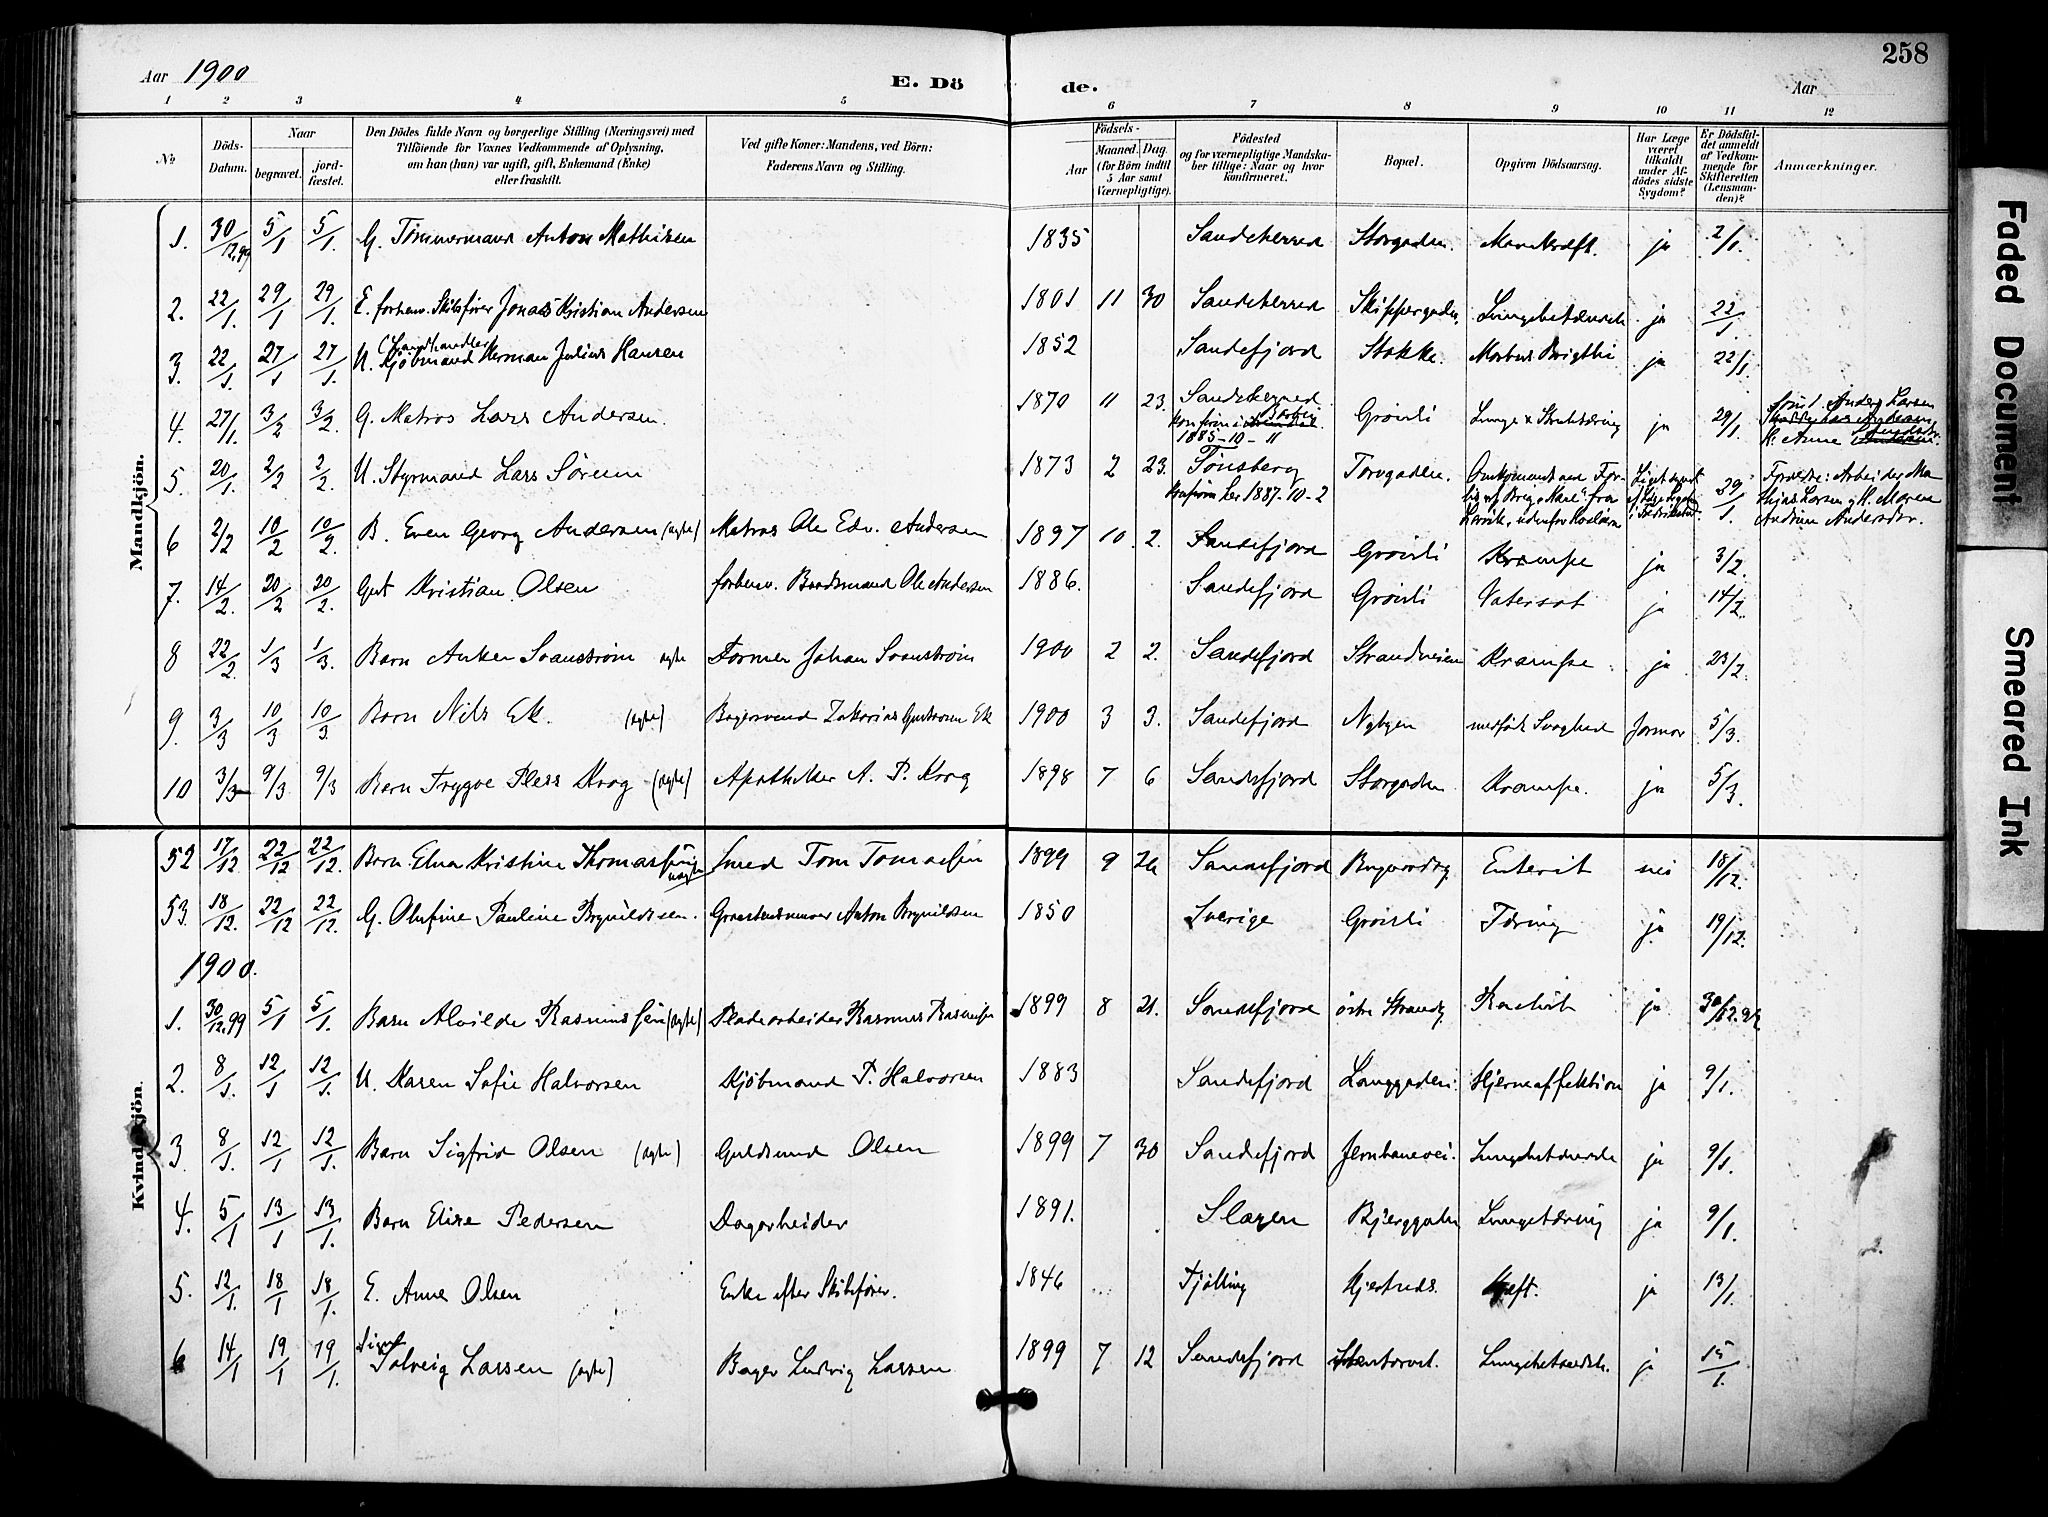 258
Aar 1900
E. Dö
de.
Aar
1 2 3 4 5 6 7 8 9 10 11 12
No
Döds-Datum.
Naar
begravet.
jord-fæstet.
Den Dödes fulde Navn og borgerlige Stilling (Næringsvei) med
Tilföiende for Voxnes Vedkommende af Oplysning,
om han (hun) var ugift, gift, Enkemand (Enke)
eller fraskilt.
Ved gifte Koner: Mandens, ved Börn:
Faderens Navn og Stilling.
Födsels-
Aar
Maaned. Dag
(for Börn indtil
5 Aar samt
Værnepligtige).
Födested
og for værnepligtige Mandska-
ber tillige: Naar og hvor
konfirmeret.
Bopæl.
Opgiven Dödsaarsag.
Har Læge
været
tilkaldt
under Af-
dödes sidste
Sygdom?
Er Dödsfal-
det anmeldt
af Vedkom-
mende for
Skifteretten
(Lensman-
den)?
Anmærkninger.
Mandkjön.
1. 30/12.99 5/1 5/1. G. Tömmermand Anton Mathisen 1835 Sandeherred Storgaden. Mavekræft. ja 2/1.
2. 22/1. 29/1 29/1. E. forhenv. Skibsfører Jonas Kristian Andersen 1801 11 30 Sandeherred Skippergaden. Lungebetændelse ja 22/1.
(Landhandler)
3. 22/1. 27/1 27/1. U. Kjøbmand Herman Julius Hansen 1852 Sandefjord Stokke. Morbus Brigthii ja 22/1.
4. 27/1. 3/2 3/2. G. Matros Lars Andersen. 1870 11 23. Sandeherred Grönli Lunge & Strubetæring ja 29/1.
1885-10-11
5. 20/1. 2/2 2/2. U. Styrmand Lars Sörensen 1873 2 23. Tönsberg Torvgaden. 29/1.
1887-10-2
6 2/2 10/2 10/2. B. Even Georg Andersen (ægte) Matros Ole Edv. Andersen 1897 10. 2. Sandefjord Grönli Krampe ja 3/2.
7. 14/2. 20/2 20/2. Gut Kristian Olsen forhenv. Baadsmand Ole Andersen 1886. Sandefjord Grönli Vatersot ja 14/2.
8 22/2. 1/3 1/3. Barn Anker Svanström ægte Former Johan Svanström 1900 2 2. Sandefjord Strandveien Krampe. ja 23/2.
9. 3/3 10/3 10/3. Barn Nils Ek. (ægte) Bagersvend Zakarias Gustavsen Ek 1900 3 3. Sandefjord Nybyen medfödt Svaghed Jormor 5/3.
10 3/3 9/3 9/3 Barn Trygve Pless Krog (ægte) Apotheker A. P. Krog 1898 7 6 Sandefjord Storgaden Krampe. ja 5/3.
Kvindekjön.
52 17/12 22/12 22/12. Barn Elna Kristine Thomassen uægte Smed Tom Tomassen 1899 9 26 Sandefjord Enterit nei 18/12.
53. 18/12. 22/12 22/12. G. Olufine Pauline Brynildsen. Anton Brynildsen 1850 Sverige Grönli Tæring ja. 19/12.
1900.
1. 30/12.99 5/1 5/1. Barn Alvilde Rasmussen (ægte) Pladearbeider Rasmus Rasmussen 1899 8 21. Sandefjord østre Strandg. Rachit ja 30/12.99
2. 8/1. 12/1 12/1. U. Karen Sofie Halvorsen Kjöbmand P. Halvorsen 1883 Sandefjord Langgaden. Hjerneaffektion ja 9/1.
3 8/1. 12/1 12/1. Barn Sigfrid Olsen (ægte) Guldsmed Olsen 1899 7 30 Sandefjord Jernbanevei. Lungebetændelse ja 9/1.
4. 5/1 13/1 13/1. Barn Elise Pedersen Dagarbeider 1891. Slagen Bjerggaden Lungetæring ja 9/1.
5. 12/1. 18/1 18/1. E. Anne Olsen Enke efter Skibsfører. 1846 Tjölling Hjertneds. Kræft. ja 13/1.
6 14/1 19/1 19/1. Solveig Larsen (ægte) Bager Ludvig Larsen 1899 7 12 Sandefjord Lungebetændelse. ja 15/1.
Faded Document
Smeared Ink